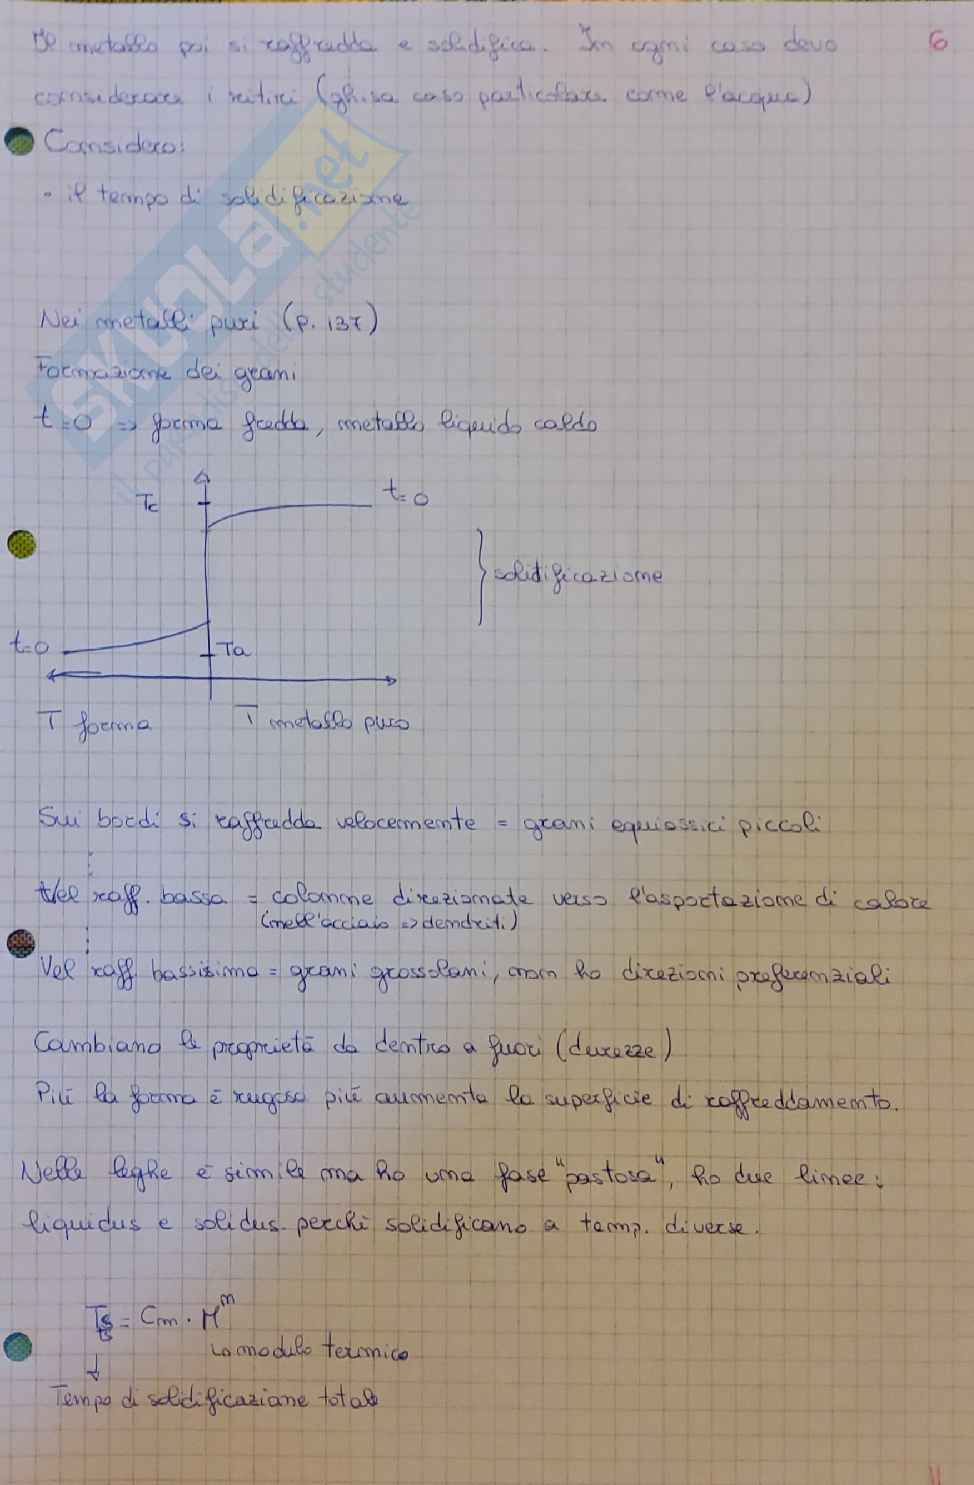 Il metallo poi si raffredda e solidifica. In ogni caso devo 6
considerare i ritiri (ghisa caso particolare come l'acqua)
Considero:
- il tempo di solidificazione
Nei metalli puri (p. 137)
Formazione dei grani
t=0 => forma fredda, metallo liquido caldo
Tc t=0
} solidificazione
t=0 Ta
T forma T metallo puro
Sui bordi si raffredda velocemente = grani equiassici piccoli
Vel raff. bassa = colonne direzionate verso l'asportazione di calore
(nell'acciaio => dendriti)
Vel raff. bassissima = grani grossolani, non ho direzioni preferenziali
Cambiano le proprietà da dentro a fuori (durezze)
Più la forma è rugosa più aumenta la superficie di raffreddamento.
Nelle leghe è simile ma ho una fase "pastosa", ho due linee:
liquidus e solidus perchè solidificano a temp. diverse.
Ts = Cm · M^n
↳ modulo termico
↓
Tempo di solidificazione totale
SKUOLA.net